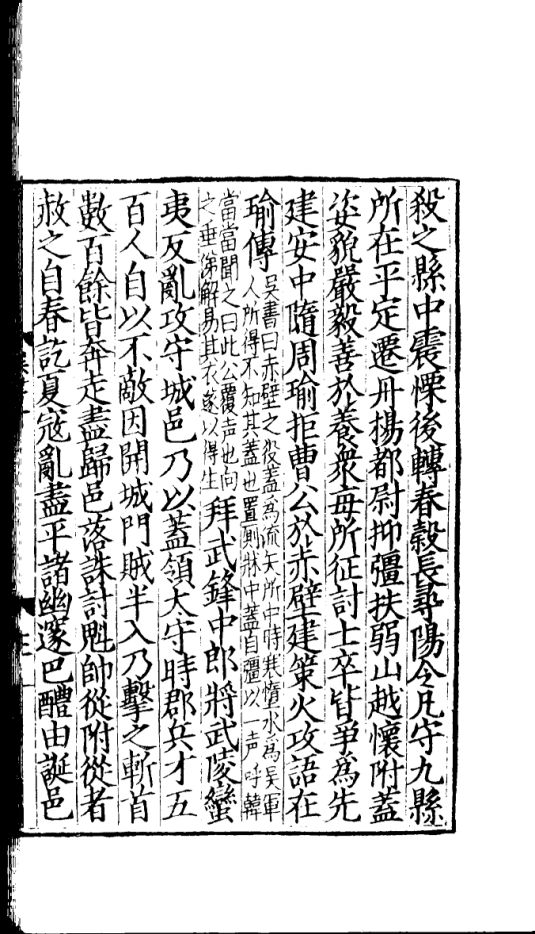 殺之縣中震慄後轉春穀長尋陽令凡守九縣
所在平定遷丹揚都尉抑彊扶弱山越懷附蓋
姿貌嚴毅善於養衆每所征討士卒皆爭為先
建安中隨周瑜拒曹公於赤壁建策火攻語在
瑜傳
吳書曰赤壁之役蓋為流矢所中時寒墮水為吳軍
人所得不知其蓋也置厠牀中蓋自彊以一声呼韓
當當聞之曰此公覆声也向
之垂涕解易其衣遂以得生
拜武鋒中郎將武陵蠻
夷反亂攻守城邑乃以蓋領大守時郡兵才五
百人自以不敵因開城門賊半入乃擊之斬首
數百餘皆奔走盡歸邑落誅討魁帥從附從者
赦之自春訖夏寇亂盡平諸幽邃巴醴由誕邑